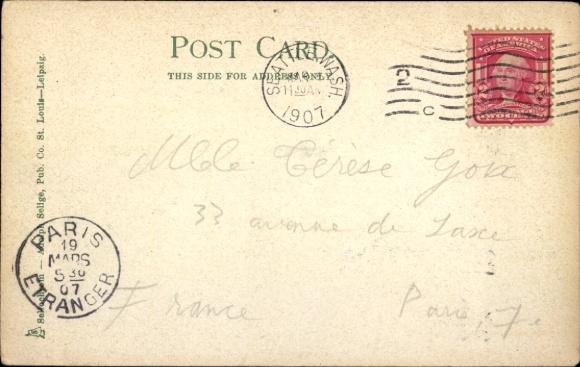 POST CARD
THIS SIDE FOR ADDRESS ONLY
SEATTLE, WASH.
11 30 AM
1907
2
C
UNITED STATES
OF AMERICA
TWO
Mlle Térèse
33 avenue de Saxe
France Paris 7.
PARIS
19
MARS
5 30
07
ETRANGER
Adolph Selige, Pub. Co. St. Louis—Leipzig.